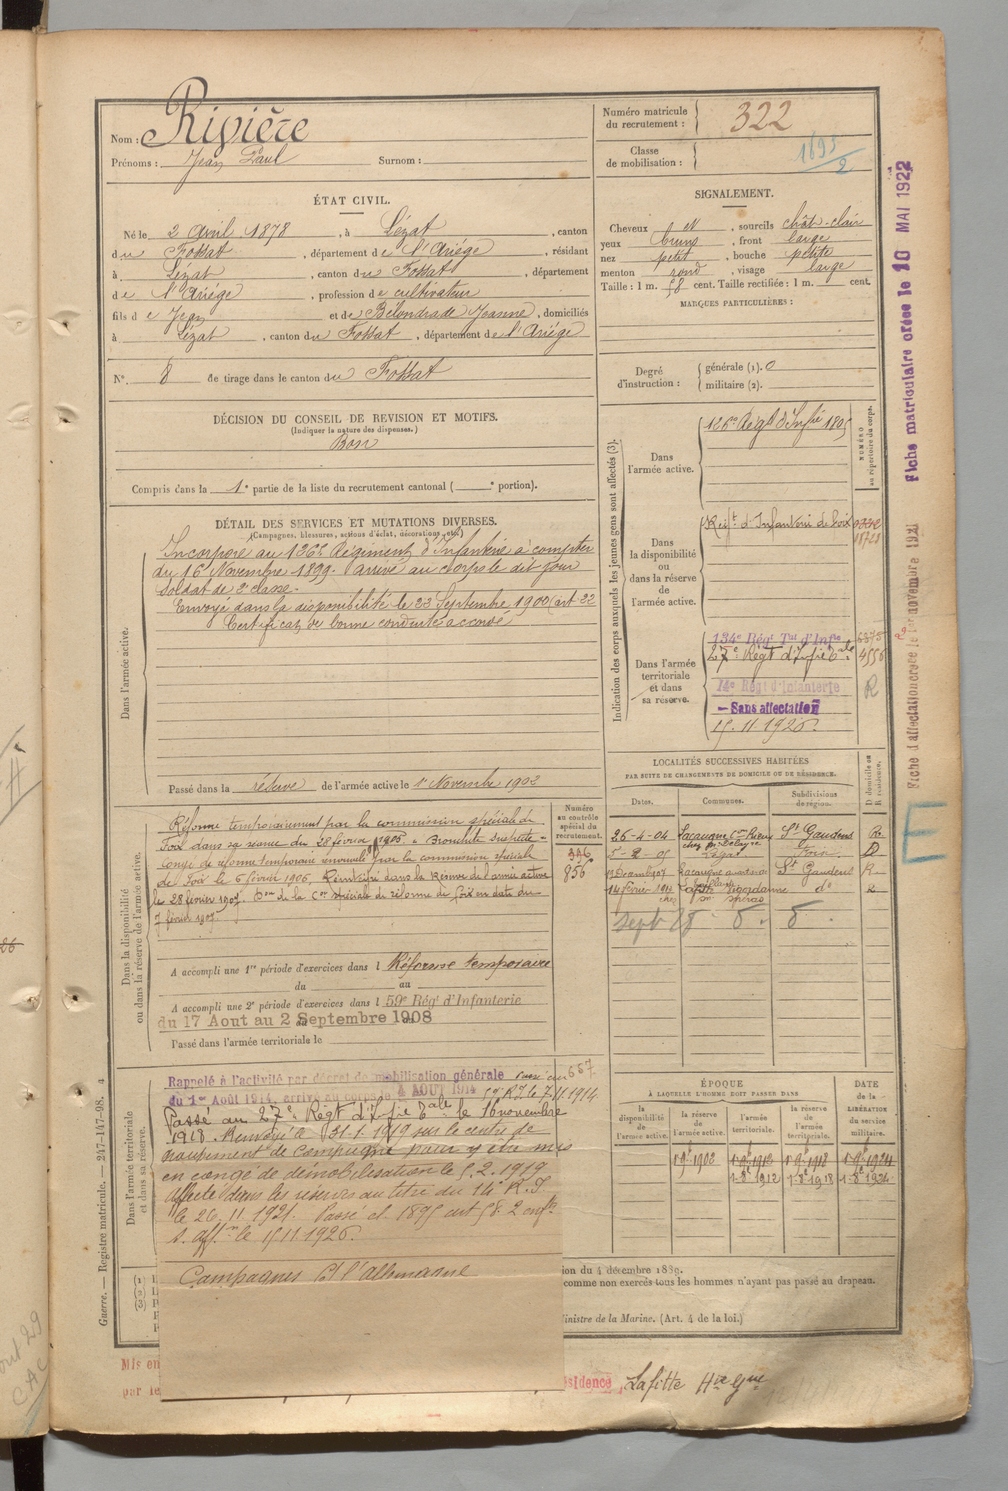 Nom : Rivière
Prénoms : Jean Paul Surnom :
Numéro matricule du recrutement : 322
Classe de mobilisation : 1895/2
ÉTAT CIVIL.
Né le 2 Avril 1878, à Lézat, canton
du Fossat, département de l'Ariége, résidant
à Lézat, canton du Fossat, département
de l'Ariége, profession de cultivateur
fils de Jean et de Bélondrade Jeanne, domiciliés
à Lézat, canton du Fossat, département de l'Ariége
N° 8 de tirage dans le canton du Fossat
SIGNALEMENT.
Cheveux et, sourcils chât-clair
yeux bruns, front large
nez petit, bouche petite
menton rond, visage large
Taille : 1 m. 58 cent. Taille rectifiée : 1 m. cent.
MARQUES PARTICULIÈRES :
Degré d'instruction : générale (1). 0
militaire (2).
DÉCISION DU CONSEIL DE REVISION ET MOTIFS.
(Indiquer la nature des dispenses.)
Bon
Compris dans la 1e partie de la liste du recrutement cantonal ( e portion).
DÉTAIL DES SERVICES ET MUTATIONS DIVERSES.
(Campagnes, blessures, actions d'éclat, décorations, etc.)
Dans l'armée active.
Incorporé au 126e Régiment d'Infanterie à compter
du 16 Novembre 1899. Arrivé au corps le dit jour
Soldat de 2e classe.
Envoyé dans la disponibilité le 22 Septembre 1900 (art 22
Certificat de bonne conduite accordé
Passé dans la réserve de l'armée active le 1er Novembre 1902
Indication des corps auxquels les jeunes gens sont affectés (3).
NUMÉRO au répertoire du corps.
Dans l'armée active.
126e Régt d'Infie
Dans la disponibilité ou dans la réserve de l'armée active.
Régt d'Infanterie de Foix
Dans l'armée territoriale et dans sa réserve.
134e Régt Tal d'Infie
27e Régt d'Infie Cale
14e Régt d'Infanterie
- Sans affectation
15.11.1926.
4556
R
Dans la disponibilité ou dans la réserve de l'armée active.
Numéro au contrôle spécial du recrutement.
Réformé temporairement par la commission spéciale de
Foix dans sa séance du 28 février 1905 "Bronchite suspecte"
Congé de réforme temporaire renouvelé par la commission spéciale
de Foix le 6 février 1906. Réintégré dans la Réserve de l'armée active
le 28 février 1907. Don de la Con spéciale de réforme de Foix en date du
7 février 1907
396
856
A accompli une 1re période d'exercices dans l Réforme temporaire
du au
A accompli une 2e période d'exercices dans l 59e Régt d'Infanterie
du 17 Aout au 2 Septembre 1908
Passé dans l'armée territoriale le
LOCALITÉS SUCCESSIVES HABITÉES
PAR SUITE DE CHANGEMENTS DE DOMICILE OU DE RÉSIDENCE.
Dates. Communes. Subdivisions de région. D. domicile ou R. résidence.
26-4-04. Lacaugne St Gaudens R.
5-2-05 Lézat Foix D
Lacaugne St Gaudens R
14 février 1914 do R
Sept 28
Dans l'armée territoriale et dans sa réserve.
Rappelé à l'activité par décret de mobilisation générale
du 1er Août 1914, arrivé au corps le 4 AOUT 1914
Passé au 27e Régt d'Infie Cale le 16 novembre
1918. Renvoyé le 31.1.1919 sur le centre de
groupement de Compiègne pour y être mis
en congé de démobilisation le 5.2.1919
Affecté dans les réserves au titre du 14e R.I
le 26.11.1921. Passé cl 1895 art 58. 2 enfts
s. affon le 15.11.1926.
Campagnes Ct l'Allemagne
667
ÉPOQUE
À LAQUELLE L'HOMME DOIT PASSER DANS
la disponibilité de l'armée active. la réserve de l'armée active. l'armée territoriale. la réserve de l'armée territoriale.
DATE de la LIBÉRATION du service militaire.
1-9e 1902 1-9e 1912 1-9e 1918 1-9e 1924
1-8e 1912 1-8e 1918 1-8e 1924
ion du 4 décembre 1889.
comme non exercés tous les hommes n'ayant pas passé au drapeau.
Ministre de la Marine. (Art. 4 de la loi.)
Guerre. — Registre matricule. — 247-147-98.
Mis en
par le
ésidence, Lafitte Hte Gne
Fiche matriculaire créée le 10 MAI 1922
Fiche d'affectation créée le 1er novembre 1921
E
CAC